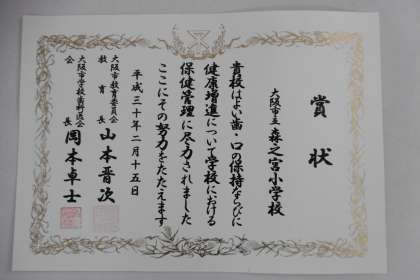 賞状
大阪市立 森之宮小学校
貴校はよい歯・口の保持ならびに
健康増進について学校における
保健管理に尽力されました
ここにその努力をたたえます
平成三十年二月十五日
大阪市教育委員会
教育長 山本晋次
大阪市学校歯科医会
会長 岡本卓士